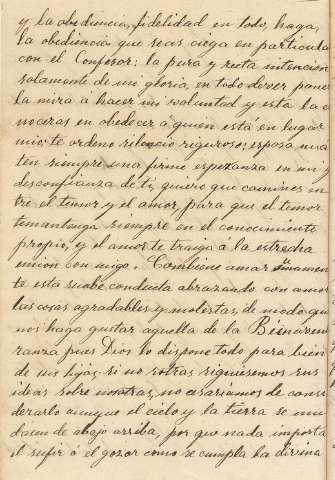 y la obediencia, fidelidad en todo, haga,
la obediencia que seas ciega en particula
con el Confesor: la pura y recta intencion
solamente de mi gloria, en todo dever pone
la mira á hacer mi voluntad y esta la co
noceras en obedecer á quien está en lugar
mio; te ordeno silencio riguroso; esposa mia
ten siempre una firme esperanza en mi y
desconfianza de ti, quiero que camines en
tre el temor y el amor, para que el temor
te mantenga siempre en el conocimiento
propio, y el amor te traiga á la estrecha
union con migo. Combiene amar
te esta suabe conducta abrazando con amor
las cosas agradables y molestas, de modo que
nos haga gustar aquella de la Bienaven
ranza pues Dios lo dispone todo para bien
de sus hijas. si no sotras siguiesemos sus
ideas sobre nosotras, no cesariamos de consi
derarlo aunque el cielo y la tierra se mu
dasen de abajo arriba, por que nada importa
el sufrir ó el gozar como se cumpla la divina